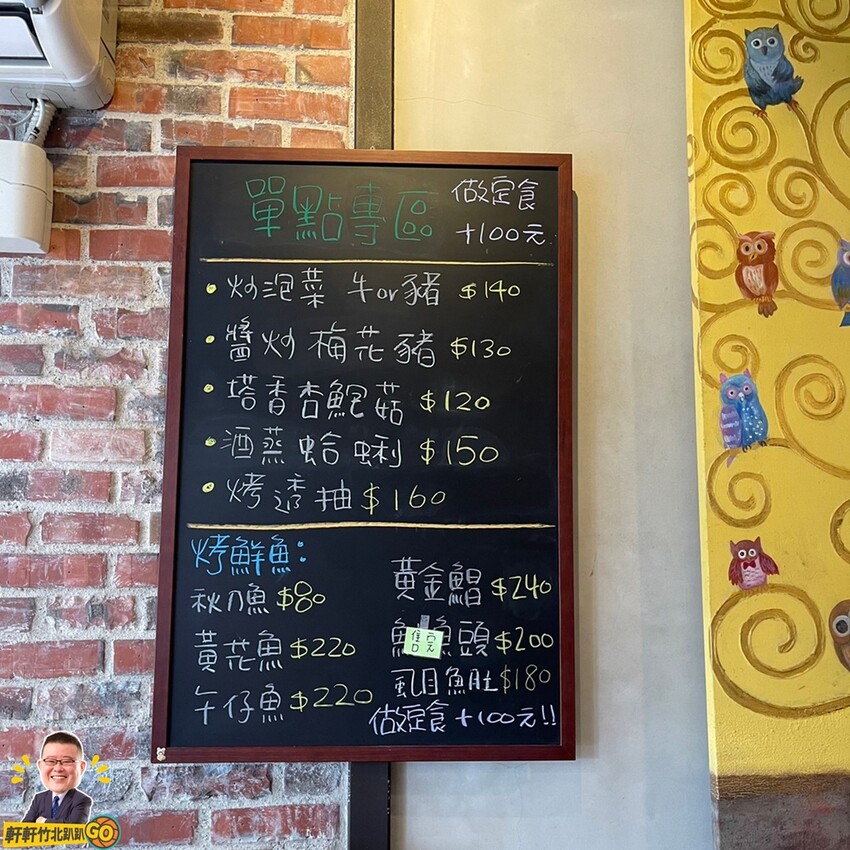 單點專區
做定食
+100元
炒泡菜 牛or豬 $140
醬炒梅花豬 $130
塔香杏鮑菇 $120
酒蒸蛤蜊 $150
烤透抽 $160
烤鮮魚:
秋刀魚 $80
黃花魚 $220
午仔魚 $220
黃金鯧 $240
魚頭 $200
售完
虱目魚肚 $180
做定食 +100元!!
軒軒竹北趴趴GO